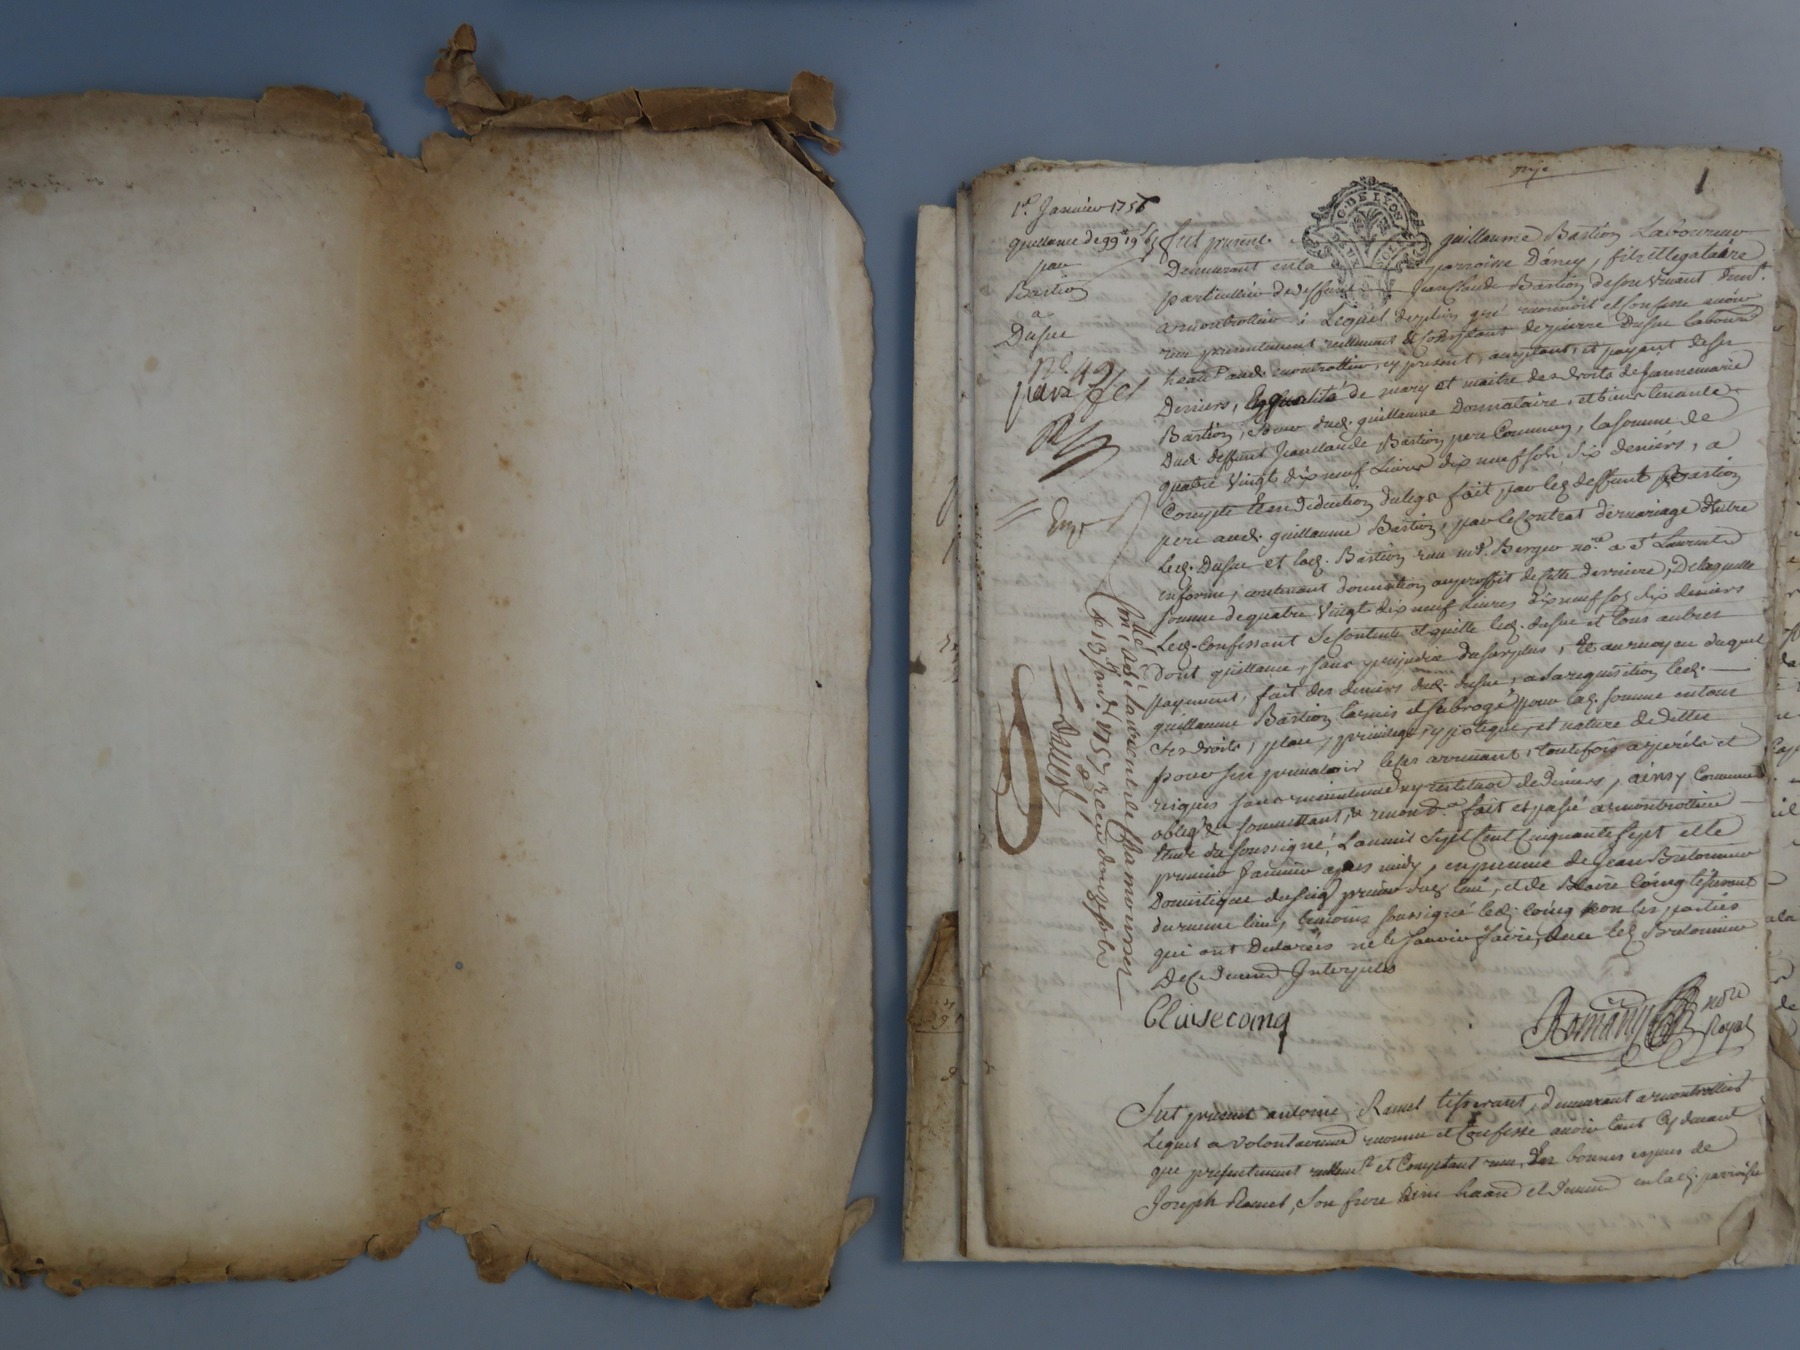 1
1er Janvier 1757
quittance de 99# 19s 6d
par
Bastion
a
Dusue
Fut present guillaume Bastion Laboureur
Demeurant en la parroisse Dancy, fils et legataire
particullier de deffunt Jean Claude Bastion de son vivant demt
a montrottier; Lequel de plein gré reconnoit et confesse avoir
reçu presentement reellement et comptant de pierre Dusue laboureur
habitt aud. montrottier, cy present, acceptant, et payant de ses
Deniers, En qualité de mary et maitre des droits de Jeannemarie
Bastion, soeur dud. guillaume Donnataire, et bien tenante
Dud. deffunt Jean Claude Bastion pere Commun, la somme de
quatre vingt dix neuf Livres dix neuf sols six deniers, a
Compte et en deduction du legs fait par led. deffunt Bastion
pere aud. guillaume Bastion, par le Contrat de mariage d'Entre
Led. Dusue et lad. Bastion reçu me. Berger nore a St Laurent
en forme, contenant donnation au proffit de cette derniere, De laquelle
somme de quatre vingt dix neuf Livres dix neuf sols six deniers
Led. Confessant se contente et quitte led. dusue et tous autres
Dont quittance, sans prejudice du surplus, et au moyen duquel
payement, fait des deniers dud. dusue, a sa requisition led.
guillaume Bastion l'a mis et subrogé pour lad. somme en tous
ses droits, place, privilege, ypoteque, et nature de dettes
pour s'en prevaloir le cas arrivant, toutefois a perils et
risques sans maintenue ny restitution de deniers, ainsy Comme
oblign. soumettant, renond. fait et passé a montrottier
Etude du soussigné, L'an mil sept Cent Cinquante sept et le
premier Janvier apres midy, en presence de Jean Bretonnier
Domestique du sieur curé, et de Blaise Coing tisserant
du meme lieu, temoins soussigné led. Coing non les parties
qui ont Declarées ne le sçavoir faire, avec led. Bretonnier
De Ce duement Interpellés
Cllé a St Laurent de Chamousset
le 13 Janr. 1757 reçu douze sols
Claisecoing
Romany nore
Royal
Fut present antoine Ramel tisserant, demeurant a montrottier
Lequel a volontairemt reconnu et Confessé avoir tant Cy devant
que presentement reellemt et Comptant reçu, en bonnes especes de
Joseph Ramel, son frere demeurt en lad. parroisse